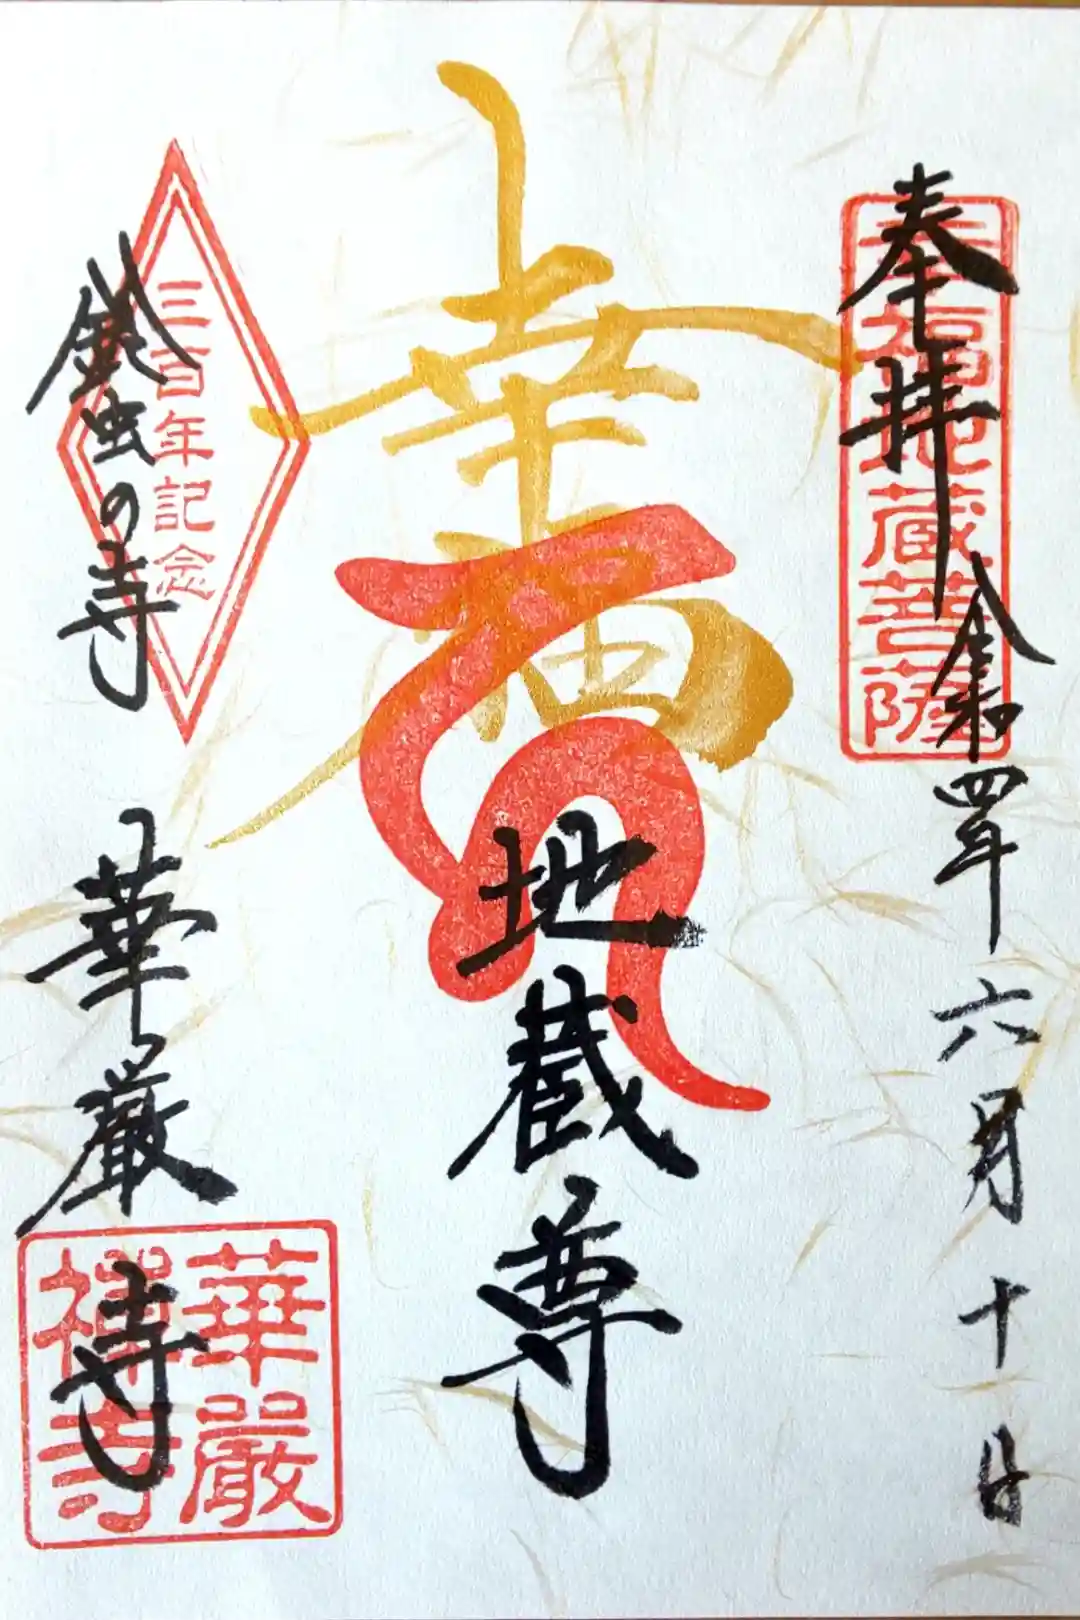 奉拝
幸福地蔵菩薩
令和四年六月十日
幸福
地蔵尊
三百年記念
鈴虫の寺
華厳寺
華嚴
禅寺